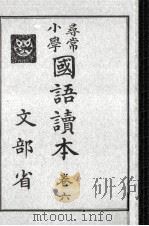 尋常
小學
國語讀本
卷六
文部省
www.mohtu.org